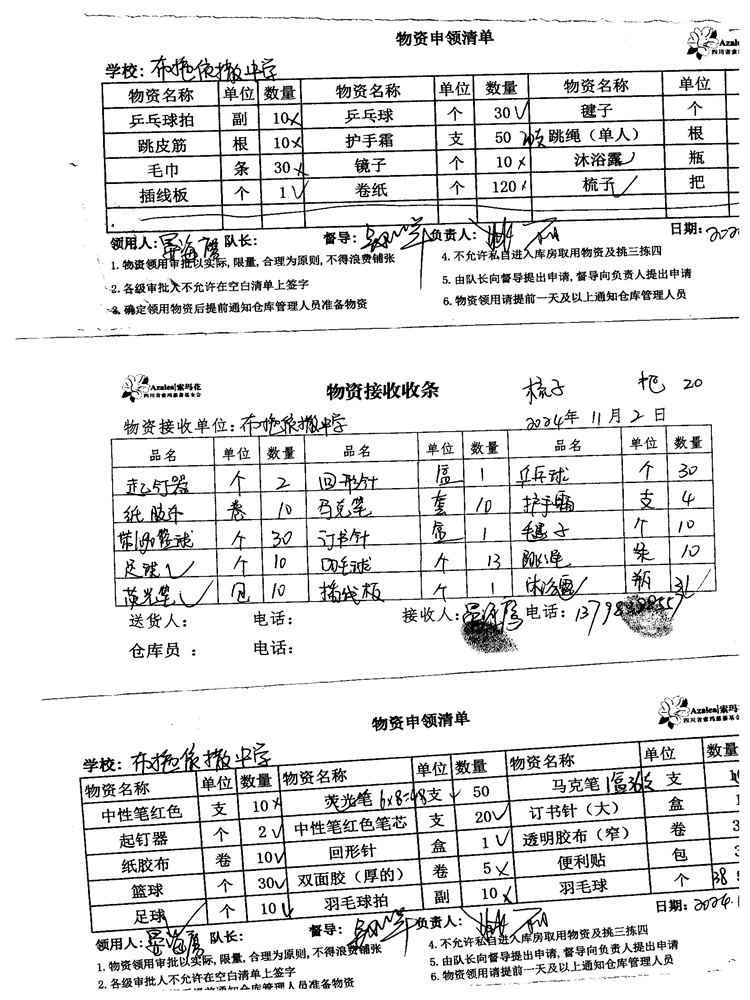 物资申领清单
Azalea
学校：布拖依撒中学
物资名称 单位 数量 物资名称 单位 数量 物资名称 单位
乒乓球拍 副 10× 乒乓球 个 30√ 毽子 个
跳皮筋 根 10× 护手霜 支 50 跳绳（单人） 根
毛巾 条 30× 镜子 个 10× 沐浴露 瓶
插线板 个 1√ 卷纸 个 120× 梳子√ 把
领用人： 队长： 督导： 负责人： 日期：
1. 物资领用审批以实际, 限量, 合理为原则, 不得浪费铺张
4. 不允许私自进入库房取用物资及挑三拣四
2. 各级审批人不允许在空白清单上签字
5. 由队长向督导提出申请, 督导向负责人提出申请
3. 确定领用物资后提前通知仓库管理人员准备物资
6. 物资领用请提前一天及以上通知仓库管理人员
Azalea|索玛花
四川省索玛慈善基金会
物资接收收条
梳子 把 20
物资接收单位：布拖依撒中学 2024年11月2日
品名 单位 数量 品名 单位 数量 品名 单位 数量
起钉器 个 2 回形针 盒 1 乒乓球 个 30
纸胶布 卷 10 马克笔 套 10 护手霜 支 4
篮球 个 30 订书针 盒 1 毽子 个 10
足球√ 个 10 羽毛球 个 13 跳绳 10
荧光笔√ 10 插线板 个 1 沐浴露√ 瓶
送货人： 电话： 接收人： 电话：
仓库员 ： 电话：
物资申领清单
Azalea|索玛
四川省索玛慈善基金
学校：布拖依撒中学
物资名称 单位 数量 物资名称 单位 数量 物资名称 单位 数量
中性笔红色 支 10× 荧光笔 6×8=48 支 50 马克笔 支
起钉器 个 2√ 中性笔红色笔芯 支 20√ 订书针（大） 盒
纸胶布 卷 10√ 回形针 盒 1√ 透明胶布（窄） 卷
篮球 个 30√ 双面胶（厚的） 卷 5× 便利贴 包
足球 个 10√ 羽毛球拍 副 10× 羽毛球 个
领用人： 队长： 督导： 负责人： 日期：2024.
1. 物资领用审批以实际, 限量, 合理为原则, 不得浪费铺张
4. 不允许私自进入库房取用物资及挑三拣四
2. 各级审批人不允许在空白清单上签字
5. 由队长向督导提出申请, 督导向负责人提出申请
6. 物资领用请提前一天及以上通知仓库管理人员